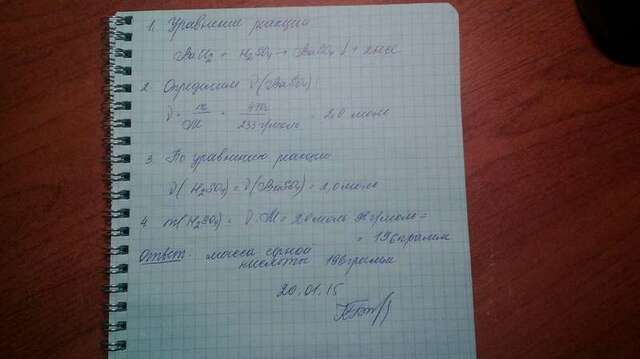 1. Уравнение реакции
BaCl2 + H2SO4 → BaSO4 ↓ + 2HCl
2. Определим ν(BaSO4)
ν = m/M = 470г/233г/моль = 2,0 моль
3. По уравнению реакции
ν(H2SO4) = ν(BaSO4) = 2,0 моль
4. m(H2SO4) = ν·M = 2,0 моль г/моль =
= 196 грамм
Ответ: масса серной
кислоты 196 грамм
20.01.15